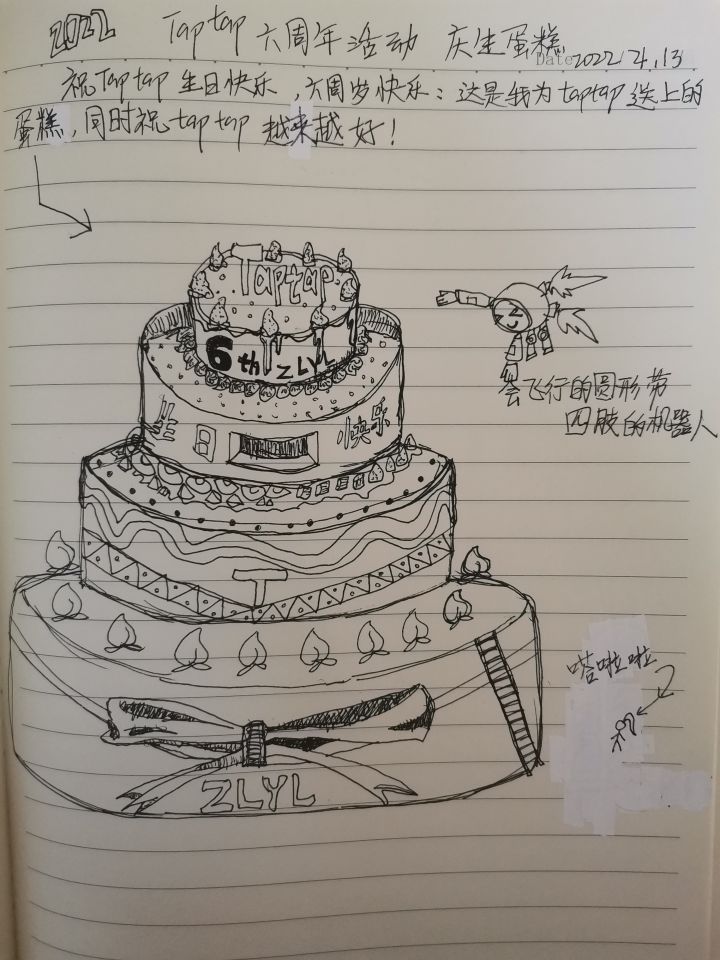 2022 Taptap 六周年活动 庆生蛋糕
Date 2022,4,13
祝Taptap生日快乐,六周岁快乐:这是我为taptap送上的
蛋糕,同时祝taptap越来越好!
Taptap
6th ZLYL
生日 快乐
会飞行的圆形带
四肢的机器人
T
嗒啦啦
ZLYL